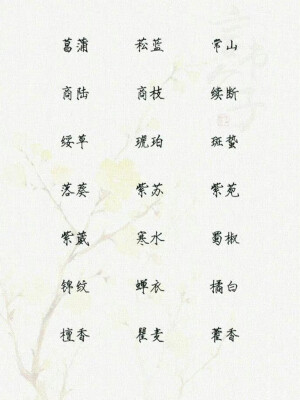 菖蒲 菘蓝 常山
商陆 商枝 续断
绥草 琥珀 斑蛰
落葵 紫苏 紫苑
紫葳 寒水 蜀椒
锦纹 蝉衣 橘白
檀香 瞿麦 藿香